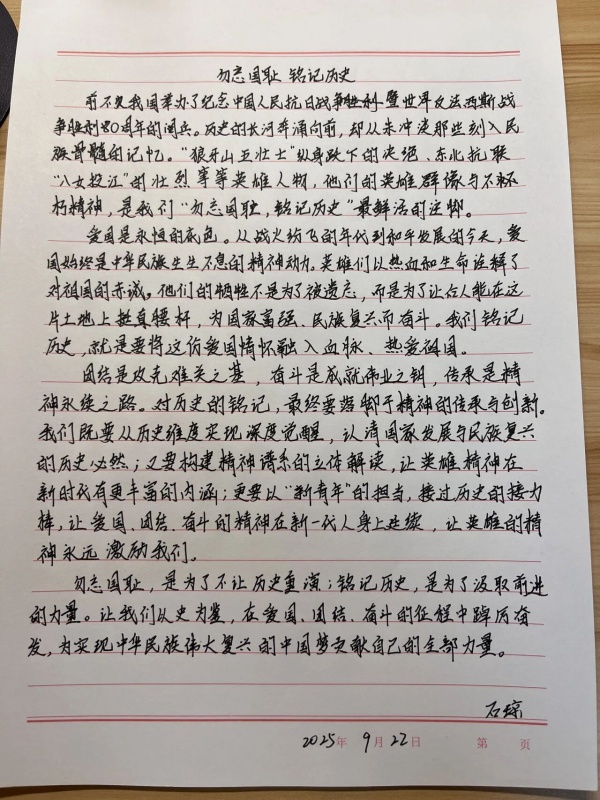 勿忘国耻 铭记历史
前不久我国举办了纪念中国人民抗日战争胜利暨世界反法西斯战
争胜利80周年的阅兵。历史的长河奔涌向前，却从未冲淡那些刻入民
族骨髓的记忆。“狼牙山五壮士”纵身跃下的决绝、东北抗联
“八女投江”的壮烈事等英雄人物，他们的英雄群像与不朽
朽精神，是我们“勿忘国耻，铭记历史”最鲜活的注脚。
爱国是永恒的底色。从战火纷飞的年代到和平发展的今天，爱
国始终是中华民族生生不息的精神动力。英雄们以热血和生命诠释了
对祖国的赤诚。他们的牺牲不是为了被遗忘，而是为了让后人能在这
片土地上挺直腰杆，为国家富强、民族复兴而奋斗。我们铭记
历史，就是要将这份爱国情怀融入血脉、热爱祖国。
团结是攻克难关之基，奋斗是成就伟业之钥，传承是精
神永续之路。对历史的铭记，最终要落脚于精神的传承与创新。
我们既要从历史维度实现深度觉醒，认清国家发展与民族复兴
的历史必然；又要构建精神谱系的立体解读，让英雄精神在
新时代有更丰富的内涵；更要以“新青年”的担当，接过历史的接力
棒，让爱国、团结、奋斗的精神在新一代人身上延续，让英雄的精
神永远激励我们。
勿忘国耻，是为了不让历史重演；铭记历史，是为了汲取前进
的力量。让我们以史为鉴，在爱国、团结、奋斗的征程中踔厉奋
发，为实现中华民族伟大复兴的中国梦贡献自己的全部力量。
石琼
2025年 9月22日 第 页